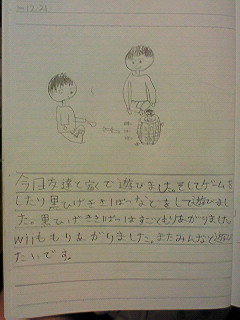 12.21
今日友達と家で遊びました。そしてゲームを
したり黒ひげききいっぱつなどをして遊びまし
た。黒ひげききいっぱつはすごくもりあがりました。
wiiももりあがりました。またみんなと遊び
たいです。